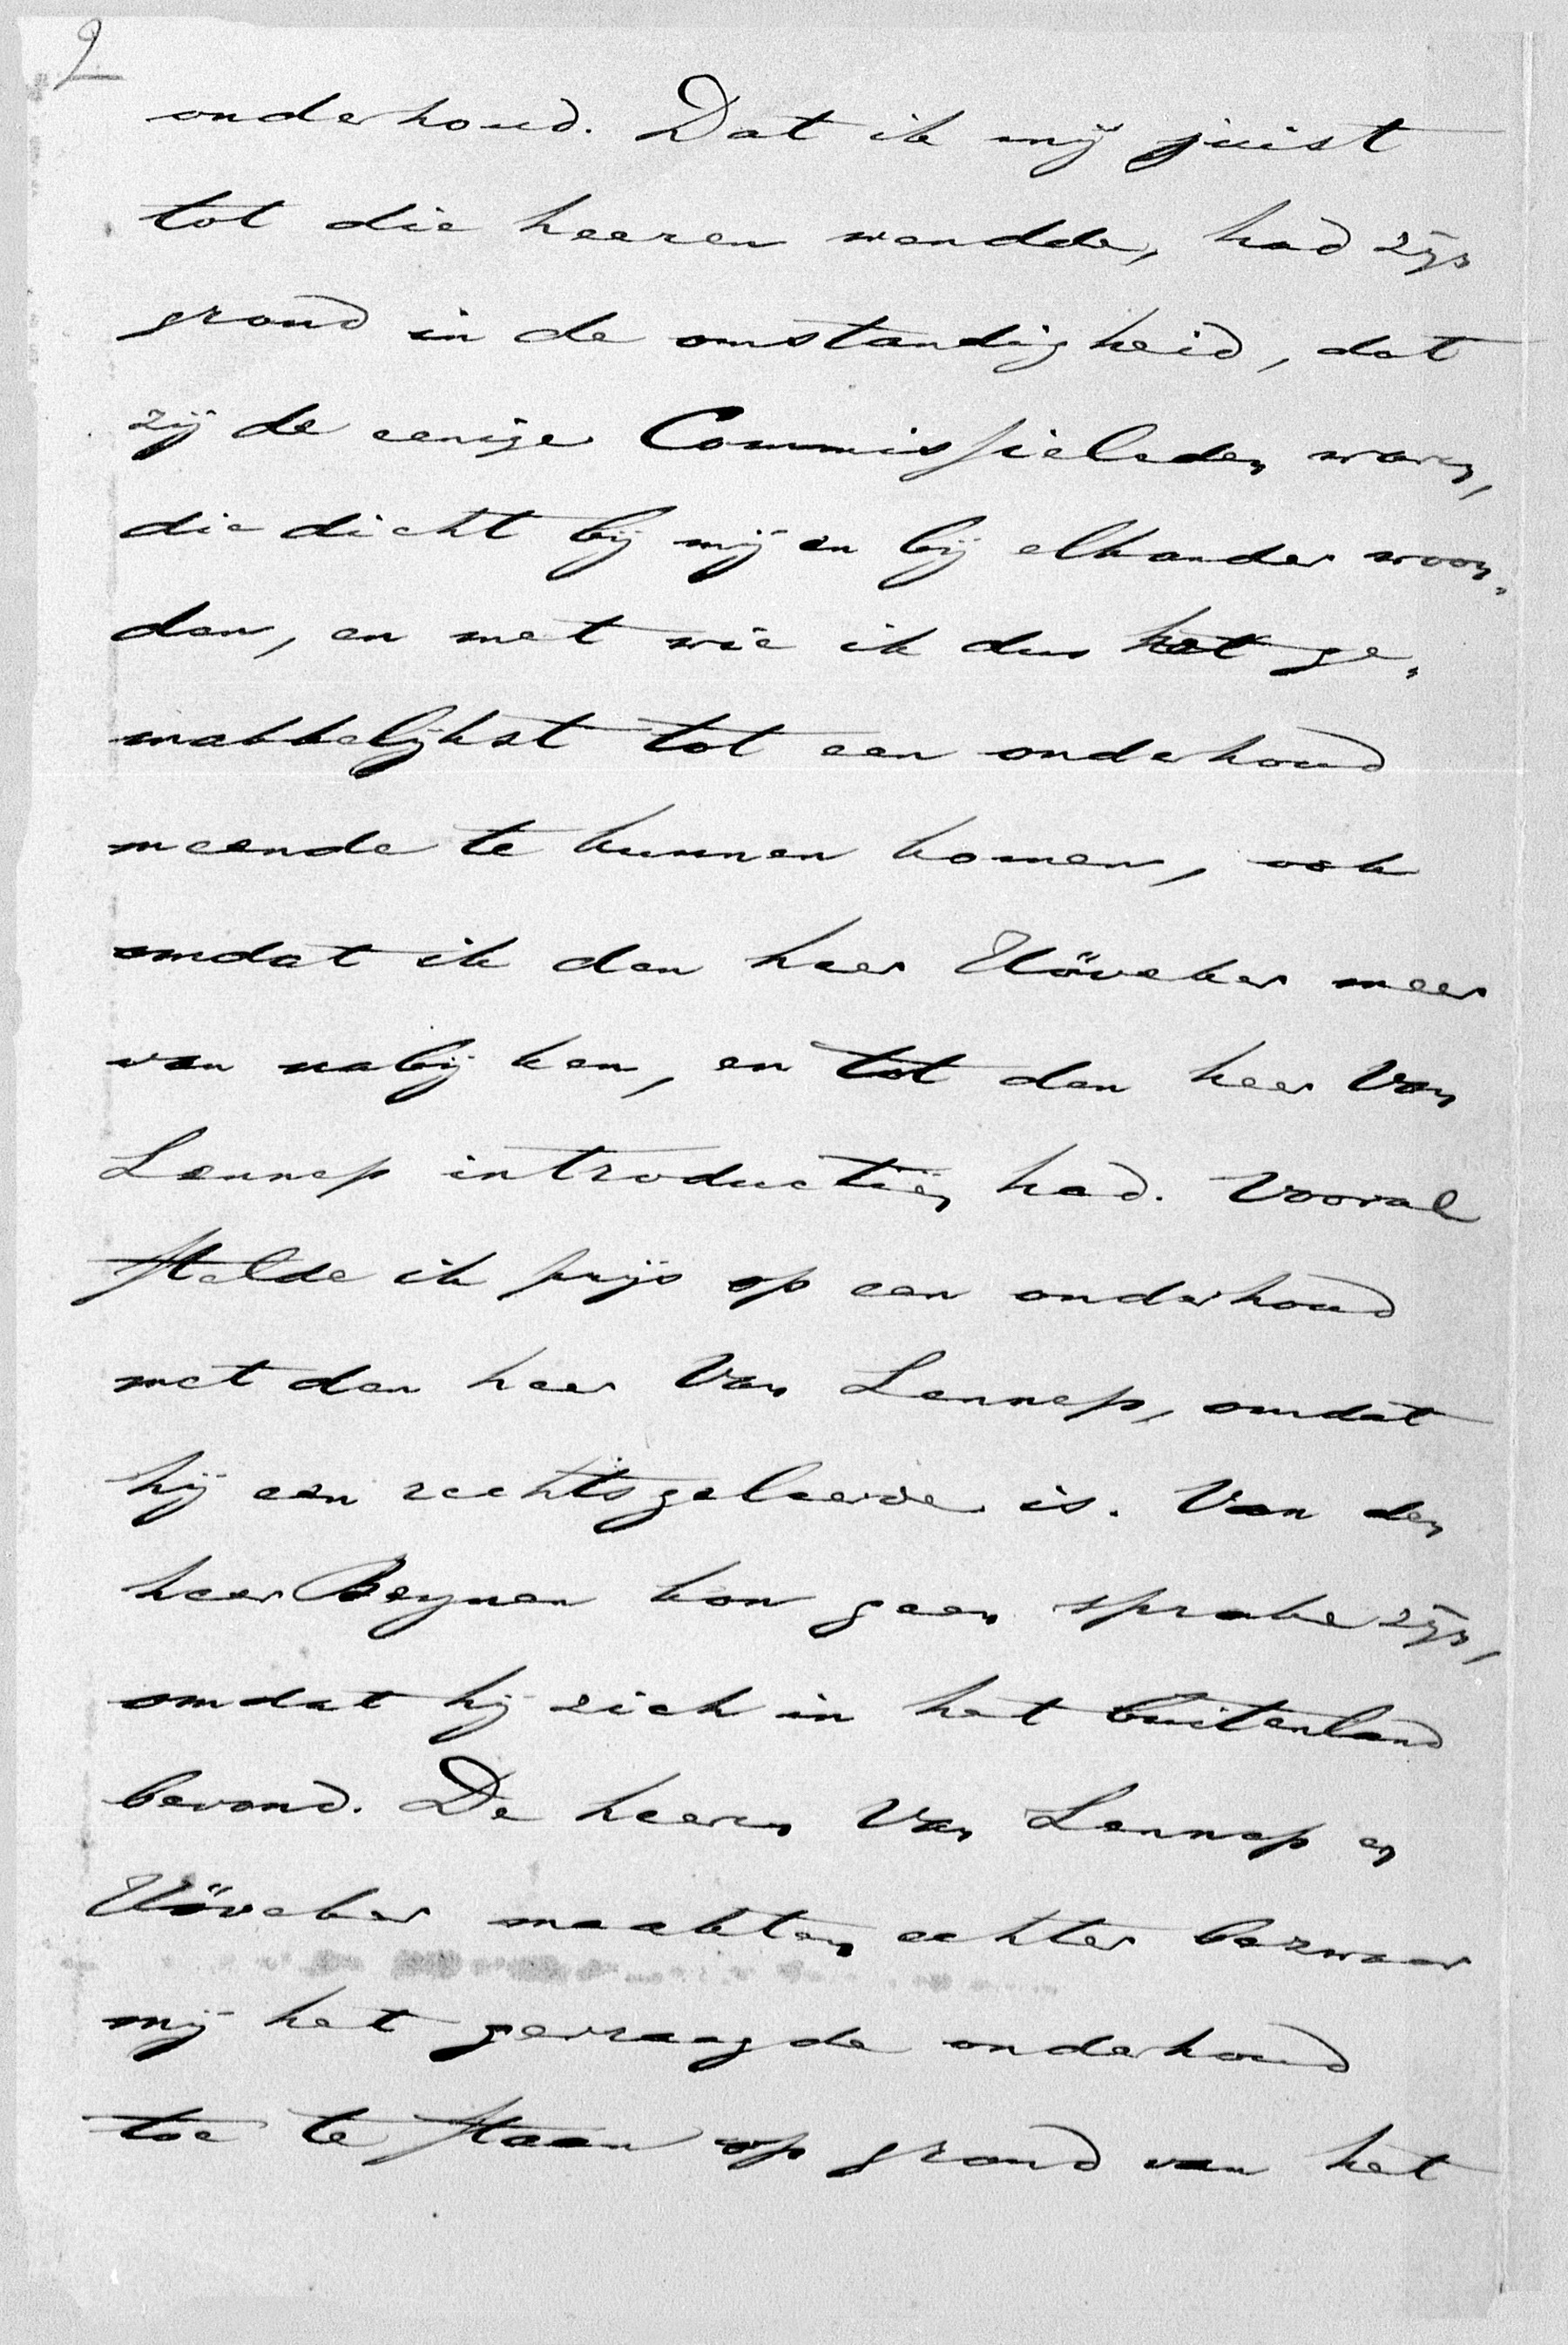 2
onderhoud. Dat ik mij juist
tot die heeren wendde, had zijn
grond in de omstandigheid, dat
zij de eenige Commissieleden waren,
die dicht bij mij en bij elkander woon-
den, en met wie ik dus het ge-
makkelijkst tot een onderhoud
meende te kunnen komen, ook
omdat ik den heer Höveker meer
van nabij ken, en tot den heer Van
Lennep introductiën had. Vooral
stelde ik prijs op een onderhoud
met den heer Van Lennep, omdat
hij een rechtsgeleerde is. Van den
heer Beynen kon geen sprake zijn,
omdat hij zich in het buitenland
bevond. De heeren Van Lennep en
Höveker maakten echter bezwaar
mij het gevraagde onderhoud
toe te staan op grond van het